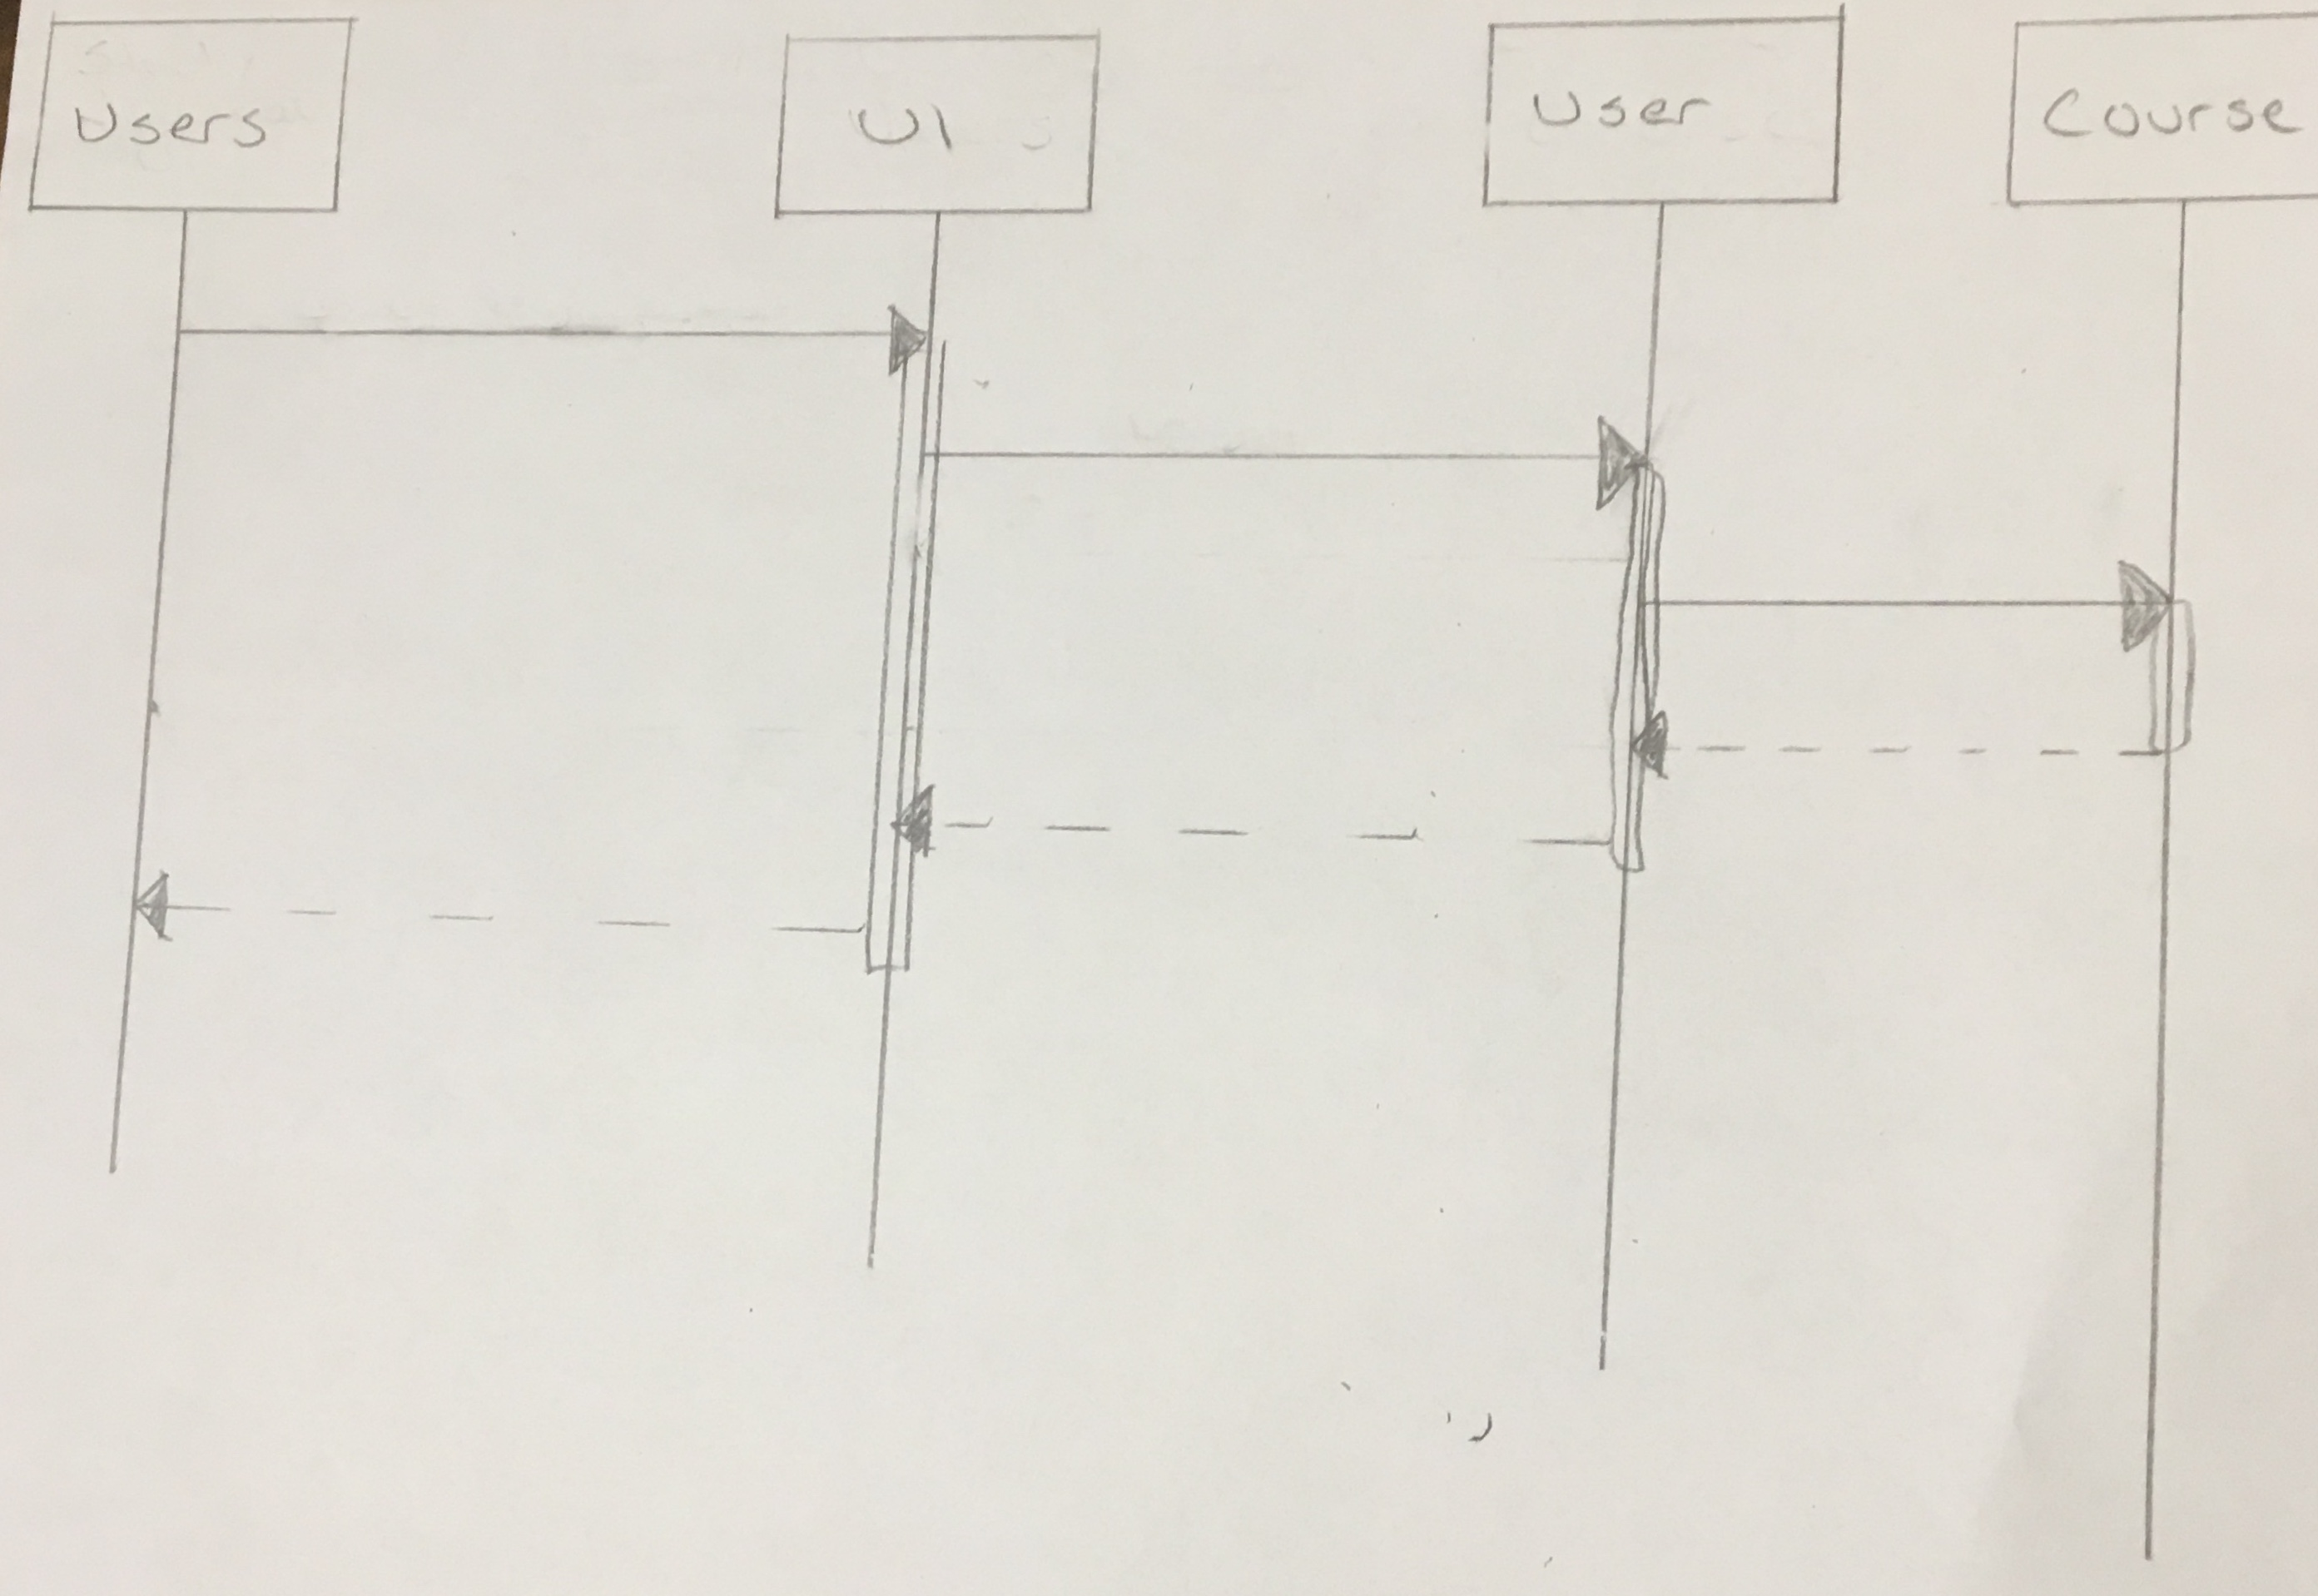 Users
UI
User
Course